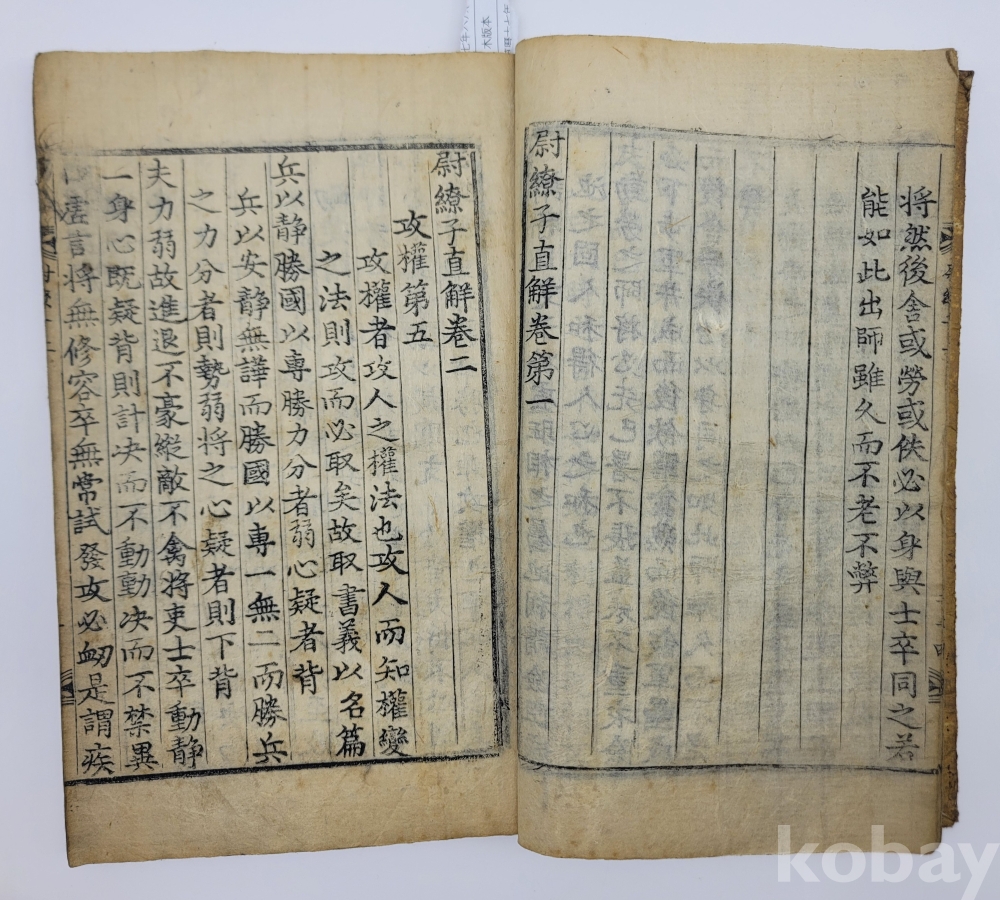 将然後舍或勞或佚必以身與士卒同之若
能如此出師雖久而不老不弊
尉繚子直解卷第一
尉繚子直解卷二
攻權第五
攻權者攻人之權法也攻人而知權變
之法則攻而必取矣故取書義以名篇
兵以静勝國以專勝力分者弱心疑者背
兵以安靜無譁而勝國以專一無二而勝兵
之力分者則勢弱將之心疑者則下背
夫力弱故進退不豪縱敵不禽将吏士卒動静
一身心既疑背則計决而不動動决而不禁異
口虚言将無修容卒無常試發攻必衂是謂疾
木版本
kobay